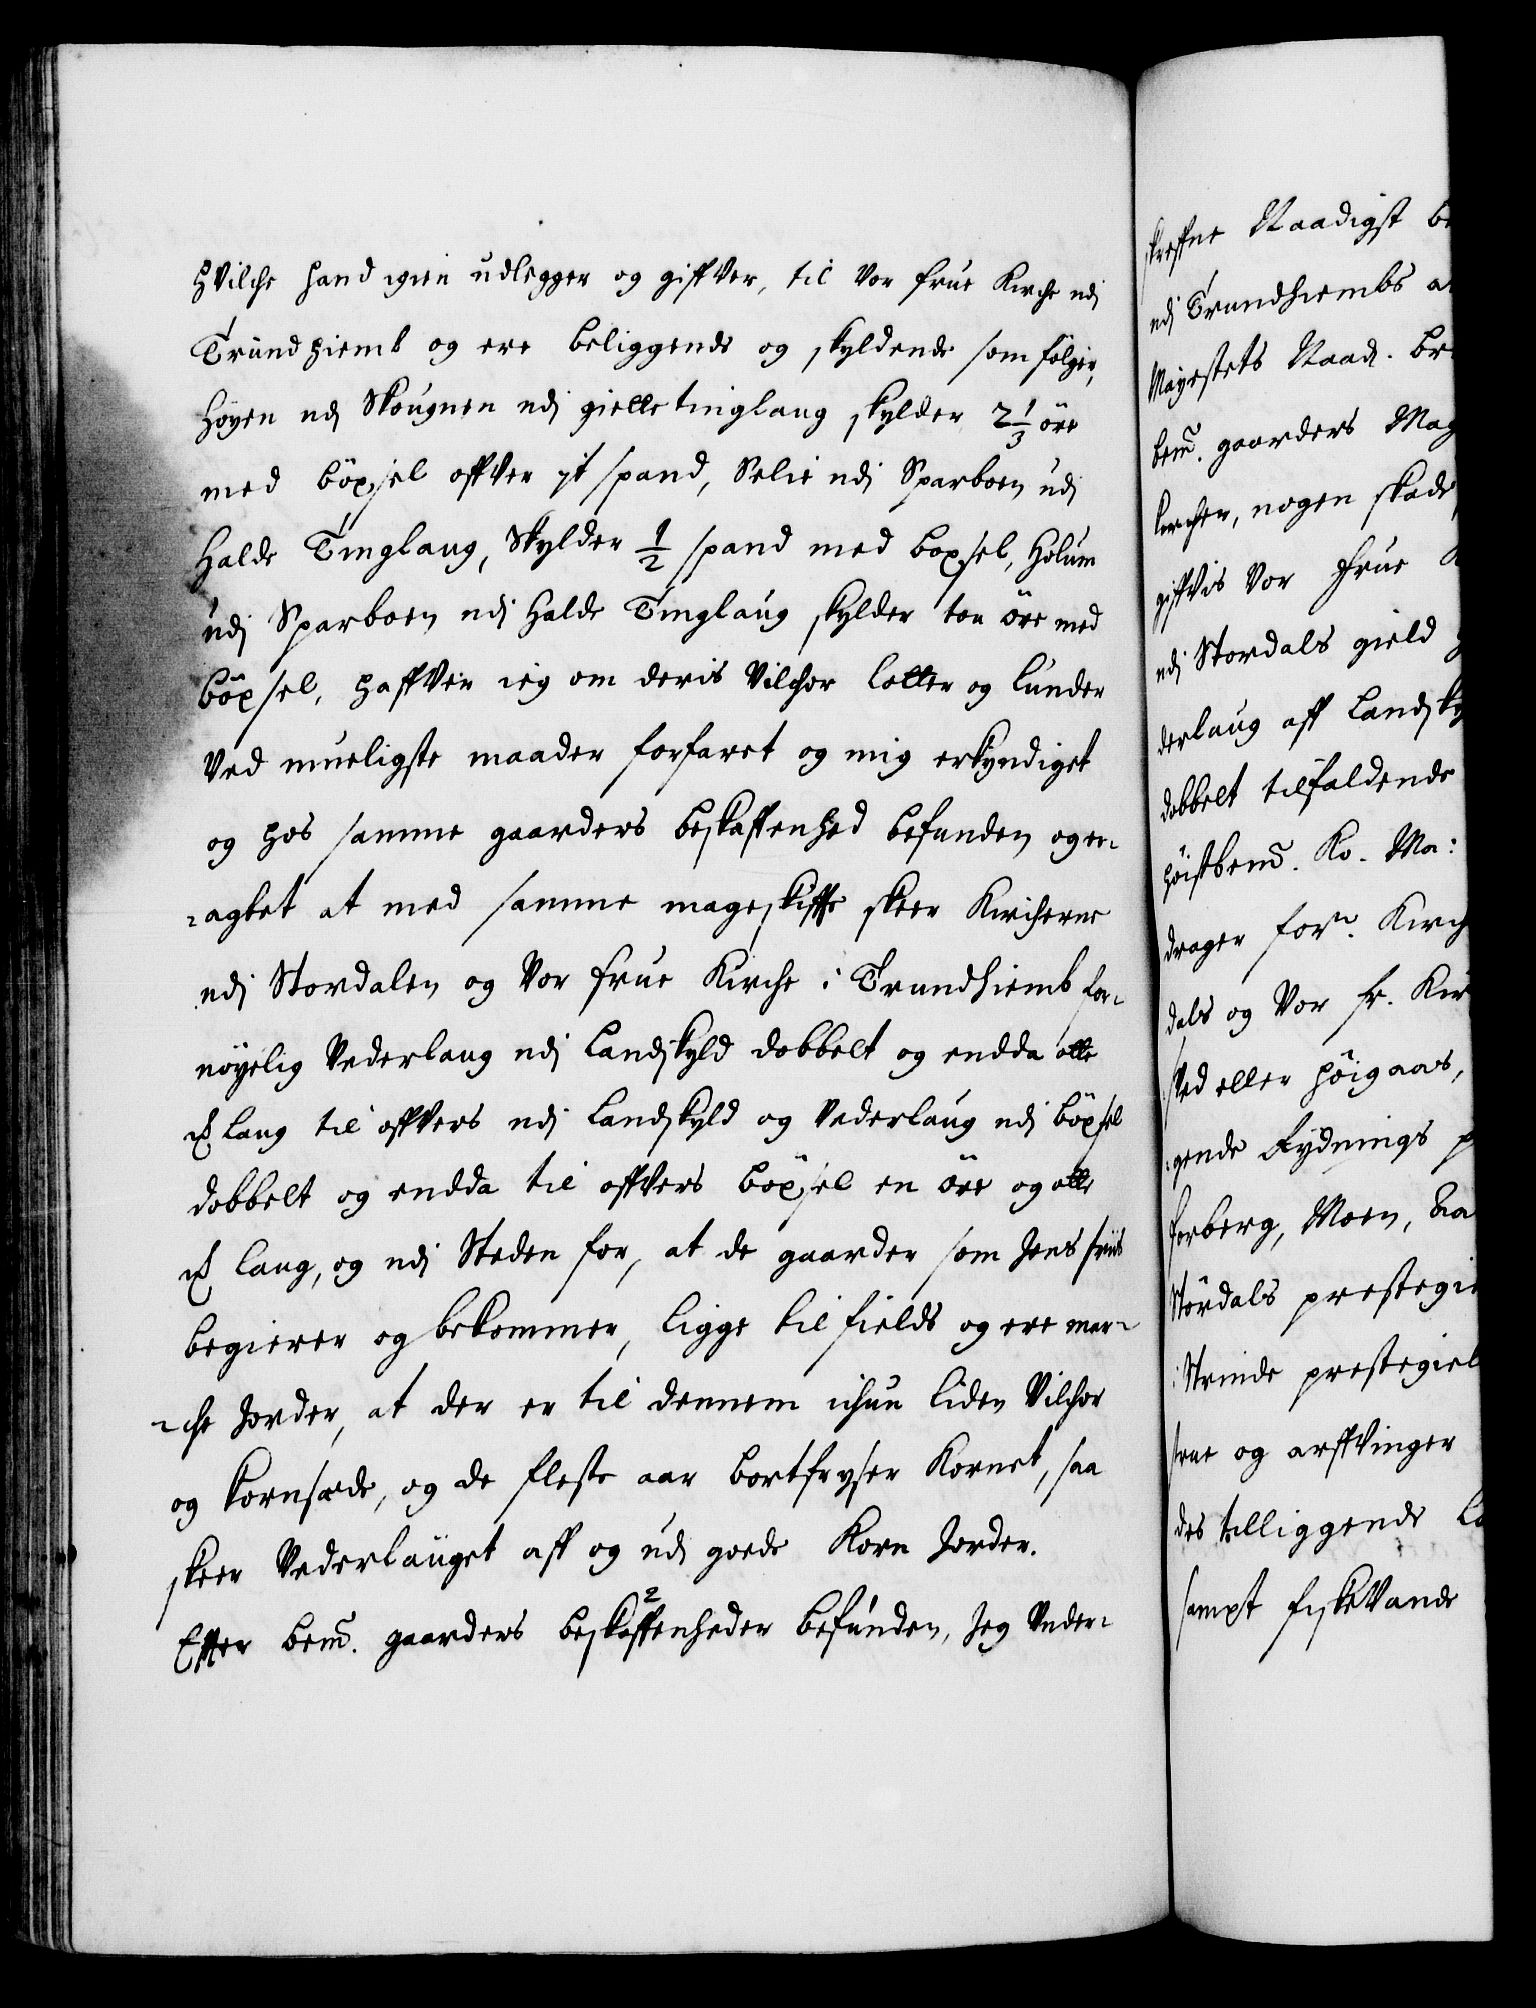 hvilche hand igien udlegger og giffver, til vor frue Kirche udj
Trundhiemb og ere beliggende og skyldende som følger,
Høyen udj Skougnen udj gielle tinglaug skylder 2 1/3 öre
med böxsel offver jt spand, Selie udj Sparboen udj
Halde Tinglaug, Skylder 1/2 spand med boxsel, Holum
udj Sparboen udj Halde Tinglaug skylder toe öre med
böxsel, haffver ieg om deris vilchor lotter og lunder
ved mueligste maader forfaret og mig erkyndiget
og hos samme gaarders beskaffenhed befunden og er-
-agtet at med samme mageskiffte skeer Kircherne
udj Stordalen og Vor frue Kirche i Trundhiemb for-
nöyelig Vederlaug udj Landskyld dobbelt og endda otte
℔ laug til offvers udj Landskyld og Vederlaug udj böxsel
dobbelt og endda til offvers böxsel en öre og otte
℔ laug, og udj Steden for, at de gaarder som Jens friis
begierer og bekommer, ligge til fields og ere mar-
-che Jorder, at der er til dennem ichun liden Vilchor
og kornsæde, og de fleste aar bortfryser Kornet, saa
skeer Vederlauget aff og udj goede Korn Jorder.
Effter bemt. gaarders beskaffenheder befunden, Jeg Under-
skreffne Naadigst be
udj Trundhiembs a
Mayestets Naad. bre
bemt. gaarders Mag
kircher, nogen skade,
giffvis vor frue K
udj Stordals gield
derlaug aff Landsky
dobbelt tilfaldende
höistbemt. Ko. Ma:
drager forn. Kirch
dals og Vor fr. Kir
sted eller höigaas,
-gende Rydnings p
forberg, Moen, Aa
Stördals prestegie
i Strinde prestegiel
strue og arffvinger
des tilliggende La
sampt fiskevande